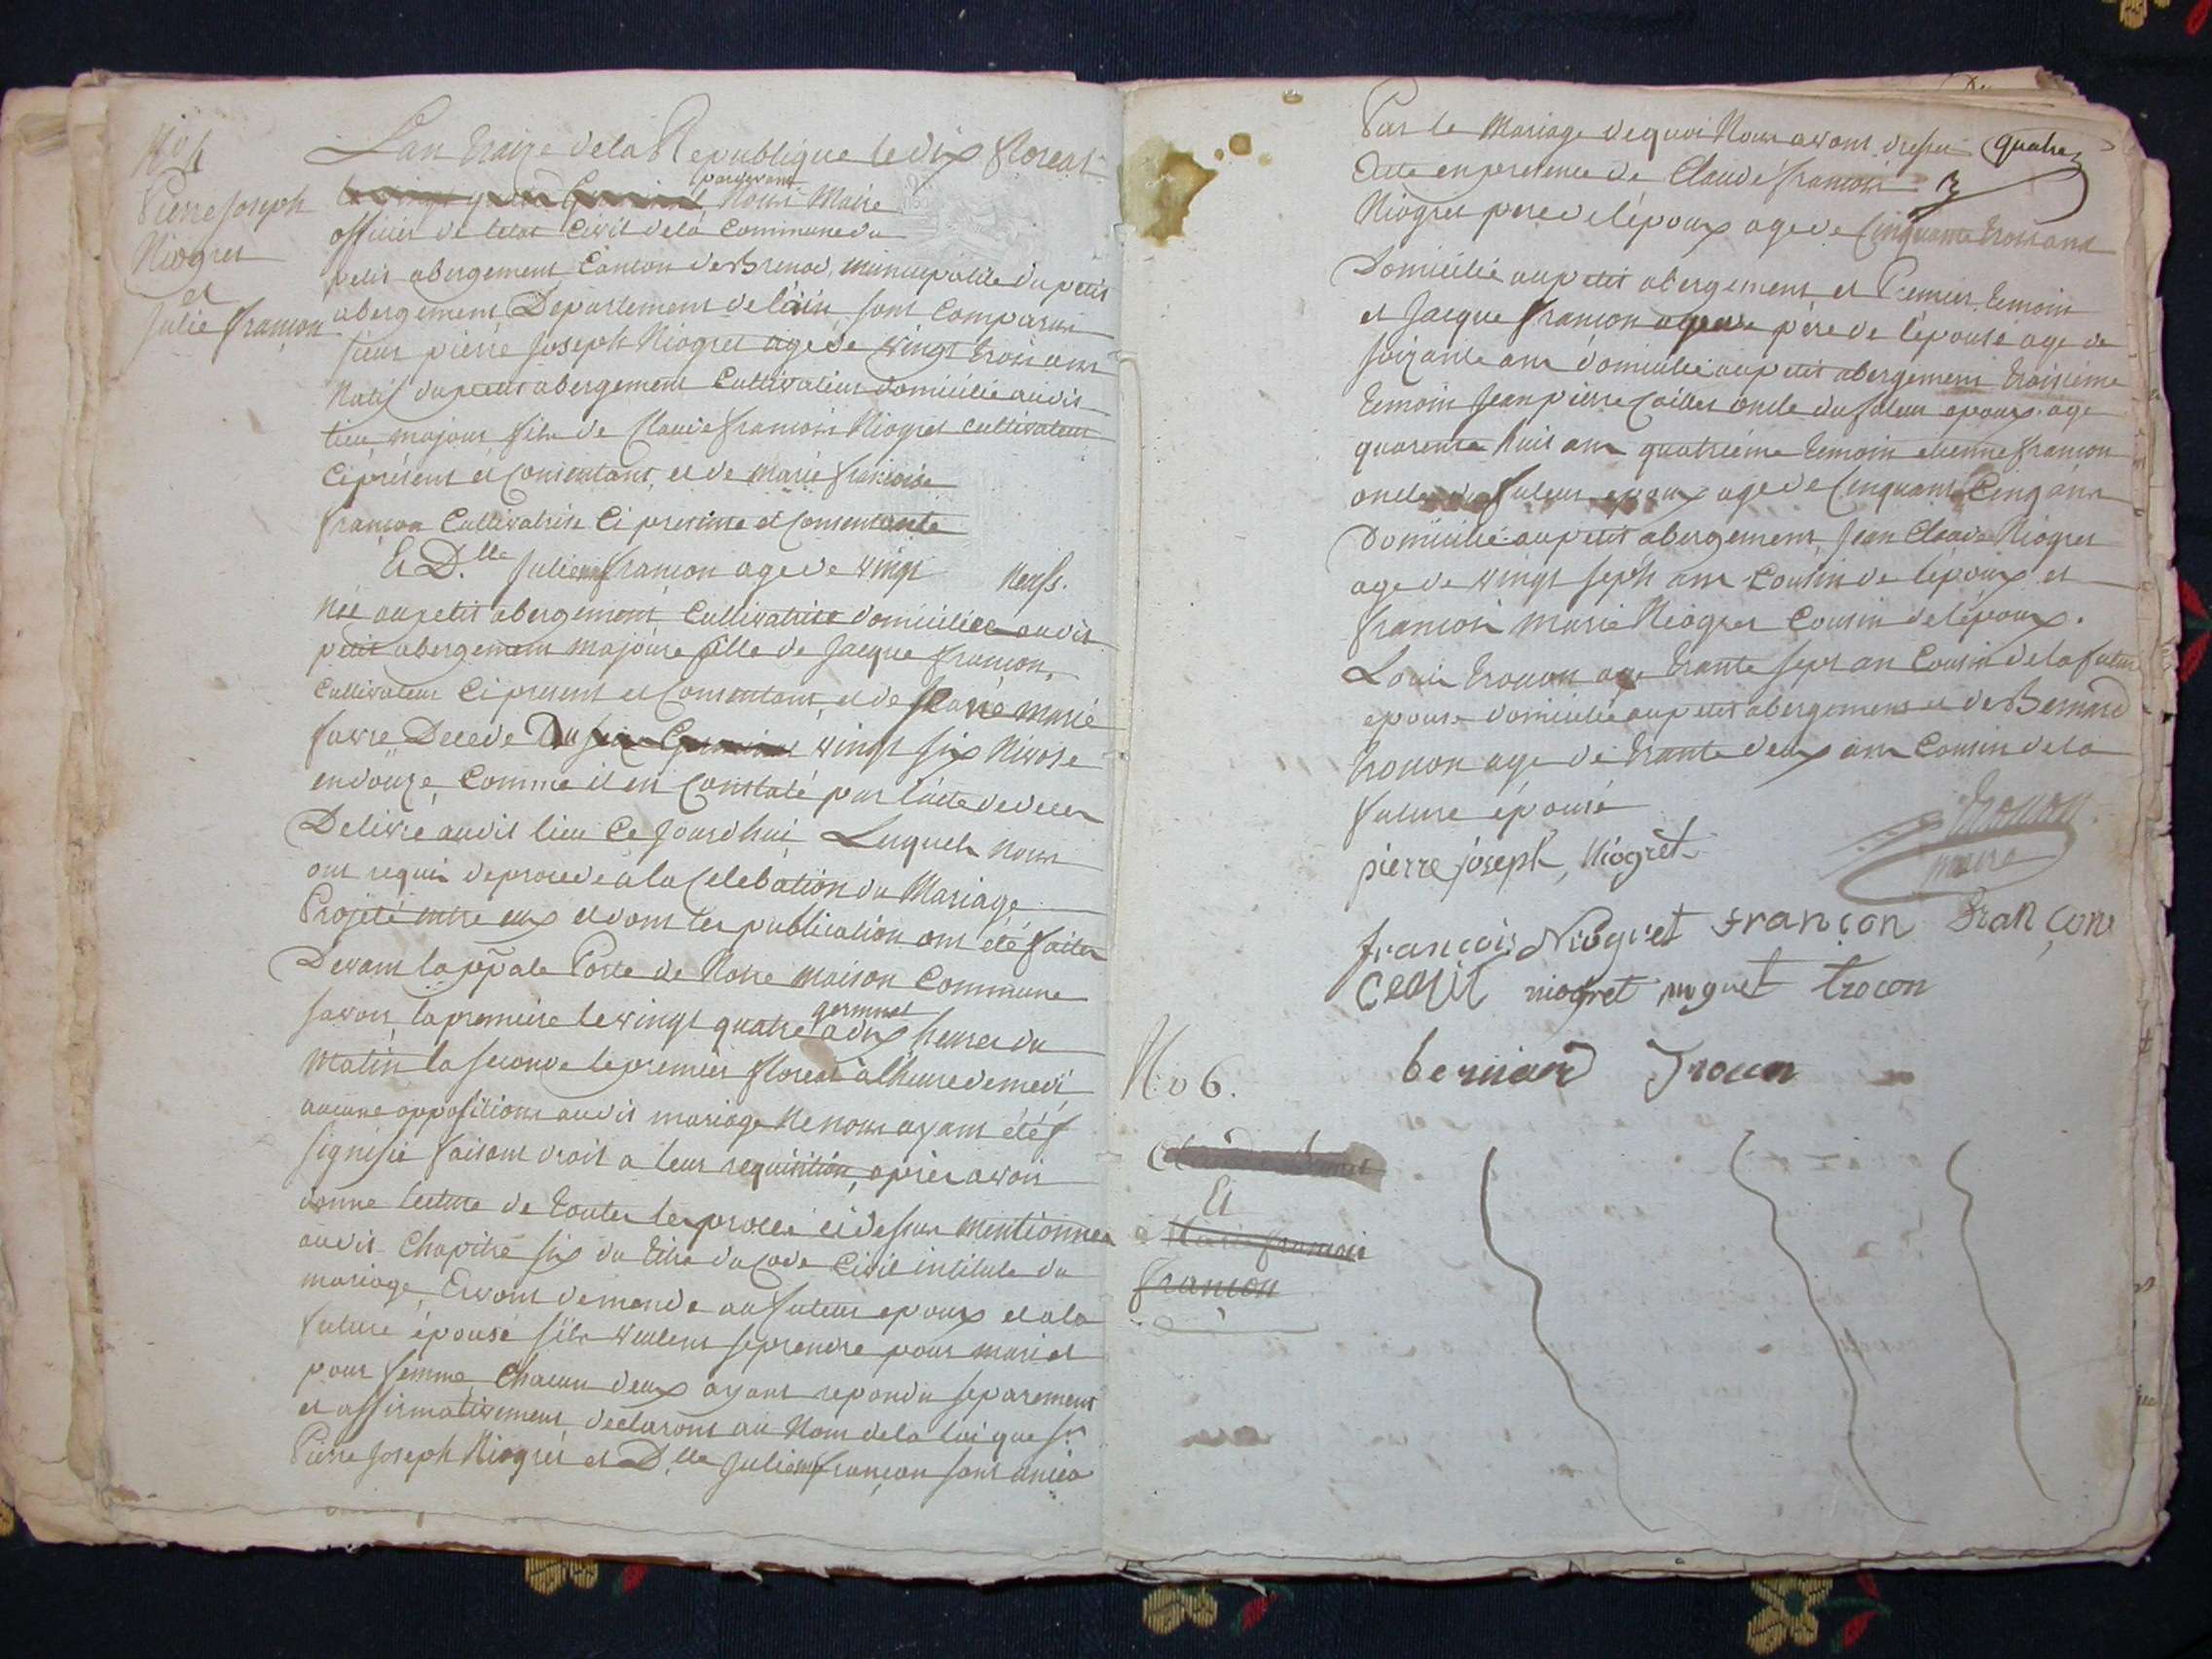 Pierre Joseph
Niogret
et
Julie françon
L'an traize de la Republique le dix floreal
pardevant
Nous Maire
officier de letat Civil de la Commune du
petit abergement Canton de Brenod, municipalite du petit
abergement Departement de l'ain, sont Comparus
sieur pierre Joseph Niogret age de vingt trois ans
Natif du petit abergement Cultivateur domicilié audit
lieu majour fils de Claude françois Niogret cultivateur
Ci présent et Consentant, et de marie françoise
françon Cultivatrise Ci presente et Consentante
Et D.lle Julie françon age de vingt neufs.
Née au petit abergement Cultivatrise domiciliée audit
petit abergement majoure fille de Jacque françon,
Cultivateur Ci present et Consentant, et de marie
favre Decede Du vingt six Nivose
en douze, Comme il en Constaté par l'acte de deces
Delivré audit lieu Ce Jourd'hui Lesquels nous
ont requis de procede à la Celebation du Mariage
Projeté entre eux et dont les publication ont été faites
Devant la ppale Porte de Notre maison Commune
germinal
savoir, la premiere le vingt quatre a dix heures du
Matin la seconde le premier floreal à l'heure de medi
aucune oppositions audit mariage Ne nous ayant été
signifié faisant droit a leur requisition, apres avoir
donne lecture de toutes les proces ci dessus mentionnes
audit Chapitre six du titre du Code Civil intitule du
mariage, avons demande au futeur epoux et a la
future épouse s'ils veulent se prendre pour mari et
pour femme Chacun deux ayant repondu separement
et affirmativement declarons au Nom de la loi que sr
Pierre Joseph Niogret et D.lle Julie françon sont unies
Par le Mariage de quoi Nous avons dressé
quatre
acte en presence de Claude françois
Niogret pere de l'époux age de Cinquante trois ans
Domicilié au petit abergement et Premier temoin
et Jacque françon père de l'épouse age de
soixante ans domicilié au petit abergement troisieme
temoin Jean pierre Cailles oncle du futeur epoux age
quarente huit ans quatriéme temoin etienne françon
oncle du futeur epoux age de Cinquant Cinq ans
Domicilié au petit abergement, Jean Claude Niogret
age de vingt septh ans Cousin de l'époux et
francois marie Niogret Cousin de l'époux.
Louis trocon age trante sept an Cousin de la future
epouse domicilié au petit abergement et de Bernard
trocon age de trante deux ans Cousin de la
future épouse
trocon
maire
pierre joseph Niogret
francois Niogret françon françon
niogret niogret trocon
bernard trocon
No 6.
Et
Marie francoise
francon